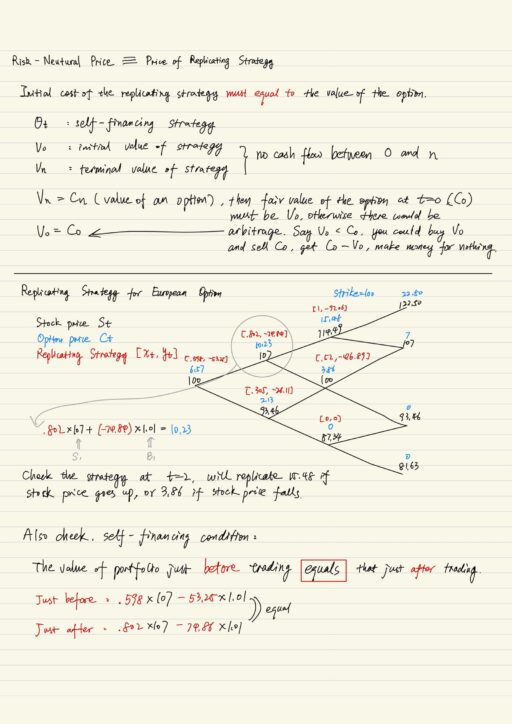 Risk-Neutural Price ≡ Price of Replicating Strategy
Initial cost of the replicating strategy must equal to the value of the option.
θt : self-financing strategy
V0 : initial value of strategy
Vn : terminal value of strategy
} no cash flow between 0 and n
Vn = Cn (value of an option), then fair value of the option at t=0 (C0)
must be V0, otherwise there would be
V0 = C0 ← arbitrage. Say V0 < C0, you could buy V0
and sell C0, get C0 - V0, make money for nothing
Replicating Strategy for European Option
Strike=100
22.50
122.50
[1, -97.06]
15.48
114.49
Stock price St
Option price Ct
Replicating Strategy [xt, yt]
[.802, -74.84]
10.23
107
7
107
[.598, -53.25]
6.57
100
[.52, -46.89]
3.86
100
[.305, -26.11]
2.13
93.46
0
93.46
[0,0]
0
87.34
0
81.63
.802 × 107 + (-74.84) × 1.01 = 10.23
S1 B1
Check the strategy at t=2, will replicate 15.48 if
stock price goes up, or 3.86 if stock price falls.
Also check. self-financing condition:
The value of portfolio just before trading equals that just after trading.
Just before = .598 × 107 - 53.25 × 1.01
Just after = .802 × 107 - 74.84 × 1.01
equal